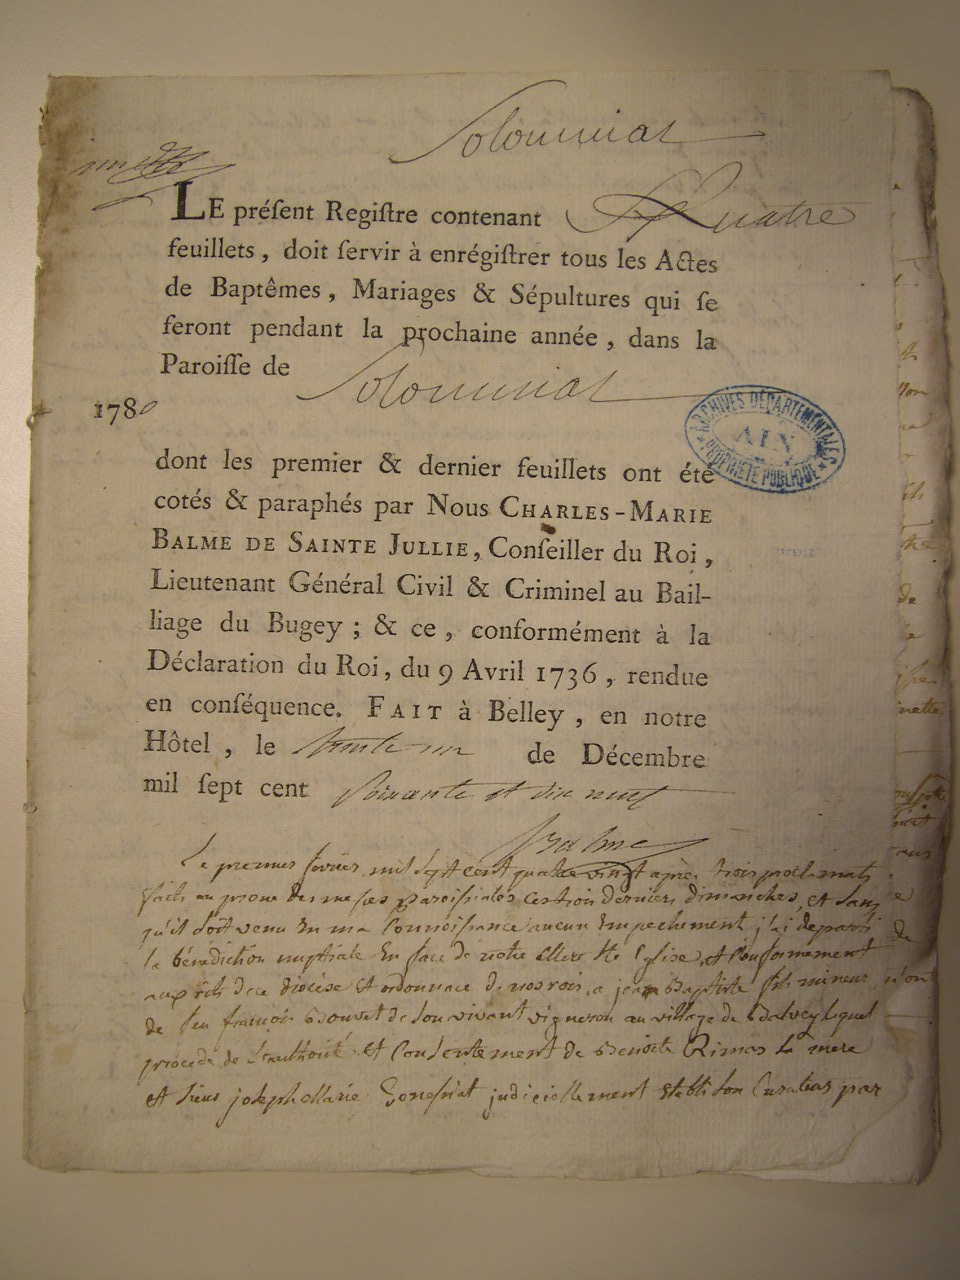 Solomniat
LE préſent Regiſtre contenant Quatre
feuillets, doit ſervir à enrégiſtrer tous les Actes
de Baptêmes, Mariages & Sépultures qui ſe
feront pendant la prochaine année, dans la
Paroiſſe de Solomniat
1780
ARCHIVES DÉPARTEMENTALES
AIN
PROPRIÉTÉ PUBLIQUE
dont les premier & dernier feuillets ont été
cotés & paraphés par Nous CHARLES-MARIE
BALME DE SAINTE JULLIE, Conſeiller du Roi,
Lieutenant Général Civil & Criminel au Bail-
liage du Bugey ; & ce, conformément à la
Déclaration du Roi, du 9 Avril 1736, rendue
en conſéquence. FAIT à Belley, en notre
Hôtel, le trente un de Décembre
mil ſept cent soixante et dix neuf
Balme
Le premier fevrier mil sept cent quatre vingt apres trois proclamats
faits au prone des messes paroissiales ces trois derniers dimanches, et sans
qu'il soit venu en ma connoissance aucun empechement j'ai departi
la bénédiction nuptiale en face de notre Mere Ste Eglise et conformement
aux rits de ce diocése et ordonnace de nos rois, a jean Baptiste fils mineur
de feu françois Bouvet de son vivant vigneron au village de lequel
procede de l'authorité et consentement de Benoite Rimas sa mere
et sieur joseph Marie Gonefriat judiciellement etabli son curateur par